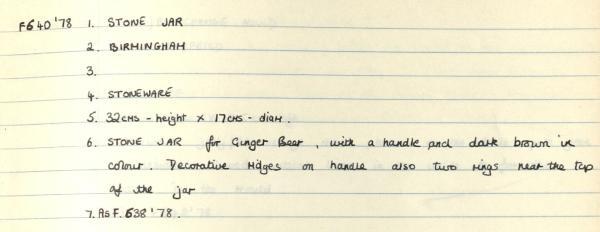 F640'78 1. STONE JAR
2. BIRMINGHAM
3.
4. STONEWARE
5. 32cms - height x 17cms - diam.
6. STONE JAR for Ginger Beer, with a handle and dark brown in
colour. Decorative ridges on handle + also two rings near the top
of the jar
7. As F. 638'78.